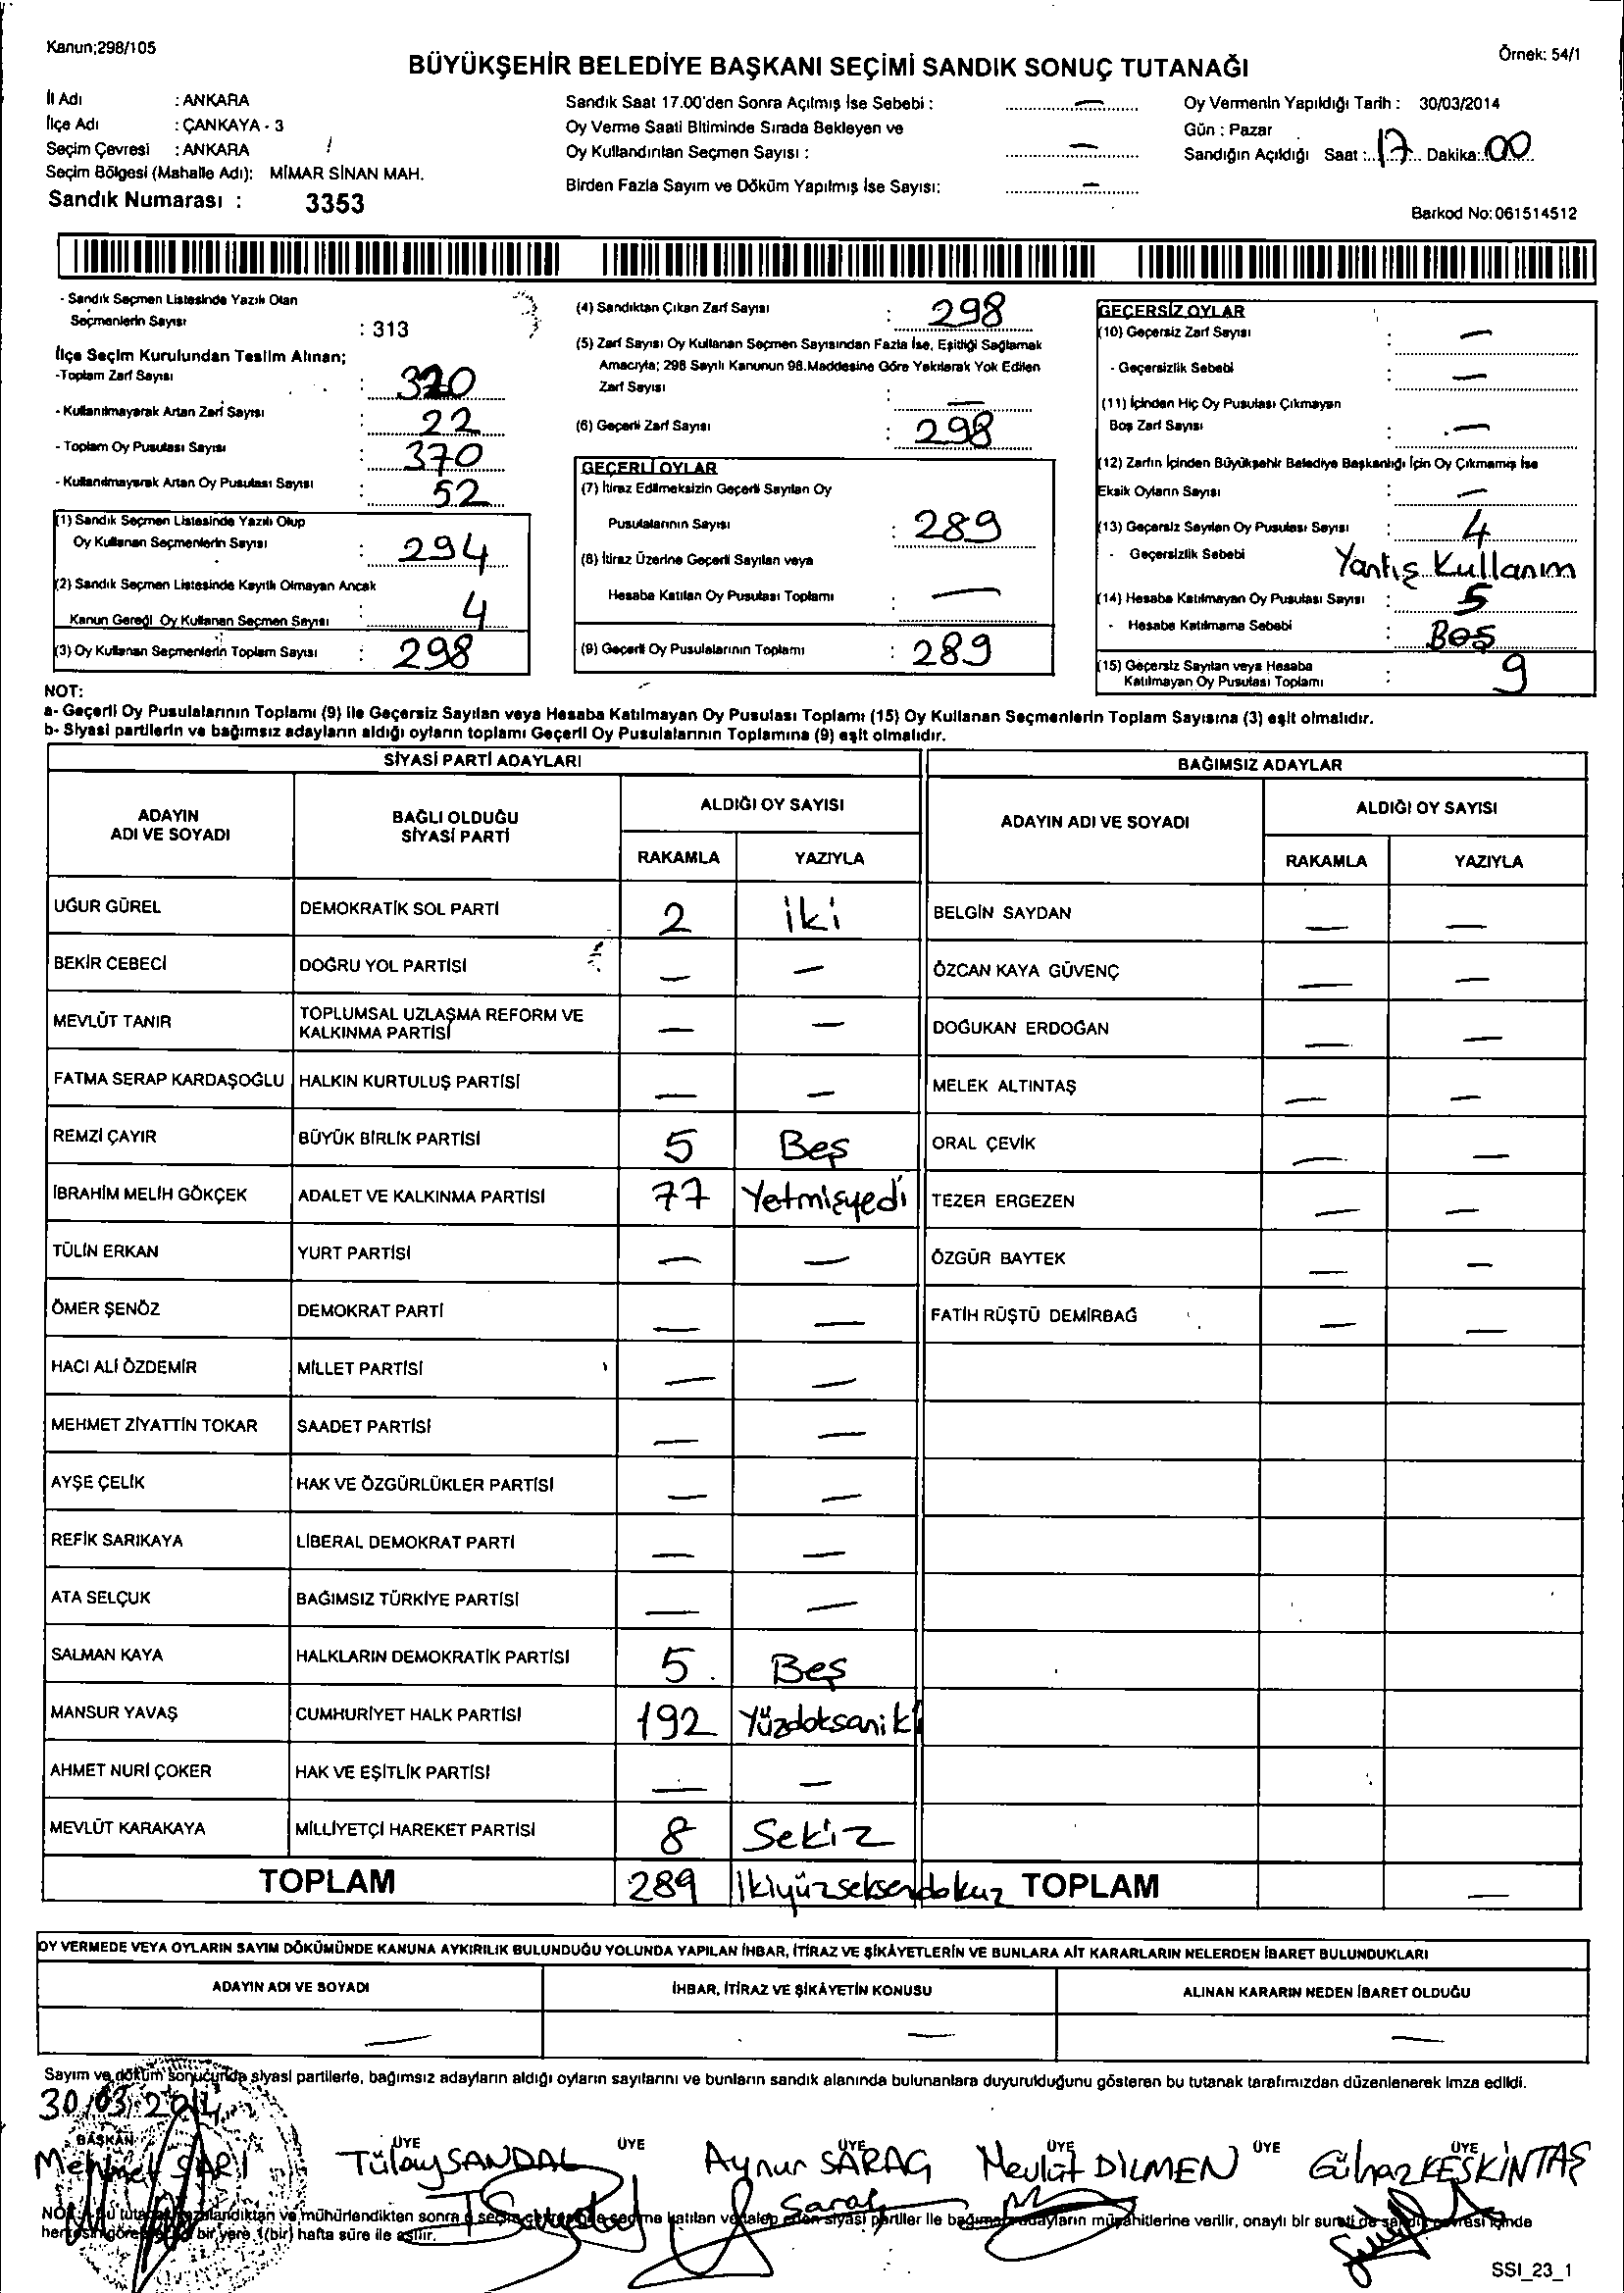 Kanun;298/105
Örnek: 54/1
BÜYÜKŞEHİR BELEDİYE BAŞKANI SEÇİMİ SANDIK SONUÇ TUTANAĞI
İl Adı : ANKARA
İlçe Adı : ÇANKAYA - 3
Seçim Çevresi : ANKARA
Seçim Bölgesi (Mahalle Adı): MİMAR SİNAN MAH.
Sandık Numarası : 3353
Sandık Saat 17.00'den Sonra Açılmış İse Sebebi : —
Oy Verme Saati Bitiminde Sırada Bekleyen ve
Oy Kullandırılan Seçmen Sayısı : —
Birden Fazla Sayım ve Döküm Yapılmış İse Sayısı: —
Oy Vermenin Yapıldığı Tarih : 30/03/2014
Gün : Pazar
Sandığın Açıldığı Saat : 17 Dakika: 00
Barkod No: 061514512
- Sandık Seçmen Listesinde Yazılı Olan
Seçmenlerin Sayısı : 313
İlçe Seçim Kurulundan Teslim Alınan;
-Toplam Zarf Sayısı : 320
- Kullanılmayarak Artan Zarf Sayısı : 22
- Toplam Oy Pusulası Sayısı : 370
- Kullanılmayarak Artan Oy Pusulası Sayısı : 52
(1) Sandık Seçmen Listesinde Yazılı Olup
Oy Kullanan Seçmenlerin Sayısı : 294
(2) Sandık Seçmen Listesinde Kayıtlı Olmayan Ancak
Kanun Gereği Oy Kullanan Seçmen Sayısı : 4
(3) Oy Kullanan Seçmenlerin Toplam Sayısı : 298
(4) Sandıktan Çıkan Zarf Sayısı : 298
(5) Zarf Sayısı Oy Kullanan Seçmen Sayısından Fazla İse, Eşitliği Sağlamak
Amacıyla; 298 Sayılı Kanunun 98.Maddesine Göre Yakılarak Yok Edilen
Zarf Sayısı : —
(6) Geçerli Zarf Sayısı : 298
GEÇERLİ OYLAR
(7) İtiraz Edilmeksizin Geçerli Sayılan Oy
Pusulalarının Sayısı : 289
(8) İtiraz Üzerine Geçerli Sayılan veya
Hesaba Katılan Oy Pusulası Toplamı : —
(9) Geçerli Oy Pusulalarının Toplamı : 289
GEÇERSİZ OYLAR
(10) Geçersiz Zarf Sayısı : —
- Geçersizlik Sebebi : —
(11) İçinden Hiç Oy Pusulası Çıkmayan
Boş Zarf Sayısı : —
(12) Zarfın İçinden Büyükşehir Belediye Başkanlığı İçin Oy Çıkmamış İse
Eksik Oyların Sayısı : —
(13) Geçersiz Sayılan Oy Pusulası Sayısı : 4
- Geçersizlik Sebebi Yanlış Kullanım
(14) Hesaba Katılmayan Oy Pusulası Sayısı : 5
- Hesaba Katılmama Sebebi : Boş
(15) Geçersiz Sayılan veya Hesaba
Katılmayan Oy Pusulası Toplamı : 9
NOT:
a- Geçerli Oy Pusulalarının Toplamı (9) ile Geçersiz Sayılan veya Hesaba Katılmayan Oy Pusulası Toplamı (15) Oy Kullanan Seçmenlerin Toplam Sayısına (3) eşit olmalıdır.
b- Siyasi partilerin ve bağımsız adayların aldığı oyların toplamı Geçerli Oy Pusulalarının Toplamına (9) eşit olmalıdır.
SİYASİ PARTİ ADAYLARI BAĞIMSIZ ADAYLAR
ADAYIN ADI VE SOYADI BAĞLI OLDUĞU SİYASİ PARTİ ALDIĞI OY SAYISI ADAYIN ADI VE SOYADI ALDIĞI OY SAYISI
RAKAMLA YAZIYLA RAKAMLA YAZIYLA
UĞUR GÜREL DEMOKRATİK SOL PARTİ 2 iki BELGİN SAYDAN — —
BEKİR CEBECİ DOĞRU YOL PARTİSİ — — ÖZCAN KAYA GÜVENÇ — —
MEVLÜT TANIR TOPLUMSAL UZLAŞMA REFORM VE KALKINMA PARTİSİ — — DOĞUKAN ERDOĞAN — —
FATMA SERAP KARDAŞOĞLU HALKIN KURTULUŞ PARTİSİ — — MELEK ALTINTAŞ — —
REMZİ ÇAYIR BÜYÜK BİRLİK PARTİSİ 5 Beş ORAL ÇEVİK — —
İBRAHİM MELİH GÖKÇEK ADALET VE KALKINMA PARTİSİ 77 Yetmişyedi TEZER ERGEZEN — —
TÜLİN ERKAN YURT PARTİSİ — — ÖZGÜR BAYTEK — —
ÖMER ŞENÖZ DEMOKRAT PARTİ — — FATİH RÜŞTÜ DEMİRBAĞ — —
HACI ALİ ÖZDEMİR MİLLET PARTİSİ — —
MEHMET ZİYATTİN TOKAR SAADET PARTİSİ — —
AYŞE ÇELİK HAK VE ÖZGÜRLÜKLER PARTİSİ — —
REFİK SARIKAYA LİBERAL DEMOKRAT PARTİ — —
ATA SELÇUK BAĞIMSIZ TÜRKİYE PARTİSİ — —
SALMAN KAYA HALKLARIN DEMOKRATİK PARTİSİ 5 Beş
MANSUR YAVAŞ CUMHURİYET HALK PARTİSİ 192 Yüzdoksaniki
AHMET NURİ ÇOKER HAK VE EŞİTLİK PARTİSİ — —
MEVLÜT KARAKAYA MİLLİYETÇİ HAREKET PARTİSİ 8 Sekiz
TOPLAM 289 İkiyüzseksendokuz TOPLAM —
OY VERMEDE VEYA OYLARIN SAYIM DÖKÜMÜNDE KANUNA AYKIRILIK BULUNDUĞU YOLUNDA YAPILAN İHBAR, İTİRAZ VE ŞİKÂYETLERİN VE BUNLARA AİT KARARLARIN NELERDEN İBARET BULUNDUKLARI
ADAYIN ADI VE SOYADI İHBAR, İTİRAZ VE ŞİKÂYETİN KONUSU ALINAN KARARIN NEDEN İBARET OLDUĞU
— — —
Sayım ve döküm sonucunda siyasi partilerle, bağımsız adayların aldığı oyların sayılarını ve bunların sandık alanında bulunanlara duyurulduğunu gösteren bu tutanak tarafımızdan düzenlenerek imza edildi.
30/03/2014
BAŞKAN ÜYE ÜYE ÜYE ÜYE ÜYE
Mehmet SARI Tülay SANDAL Aynur SARAÇ Mevlüt DİLMEN Gülnaz KESKİNTAŞ
mühürlendikten sonra katılan ve talep eden siyasi partiler ile bağımsız adayların müşahitlerine verilir, onaylı bir sureti de sandık çevresi içinde
bir yere 1(bir) hafta süre ile asılır.
SSI_23_1